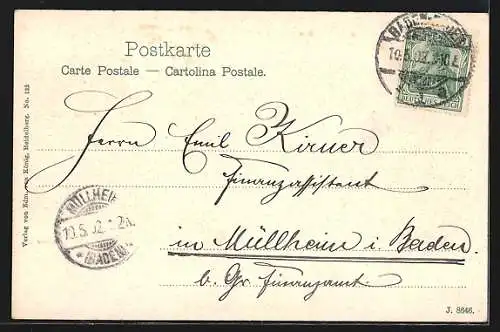 Postkarte
Carte Postale — Cartolina Postale.
BADEN-BADEN
19.5.02.
DEUTSCHES REICH
Herrn Emil Kirner
Finanzassistent
in Müllheim i. Baden
b. Gr. Finanzamt.
MÜLLHEIM
19.5.02
(BADEN)
Verlag von Edm. von König, Heidelberg. No. 122
J. 8646.